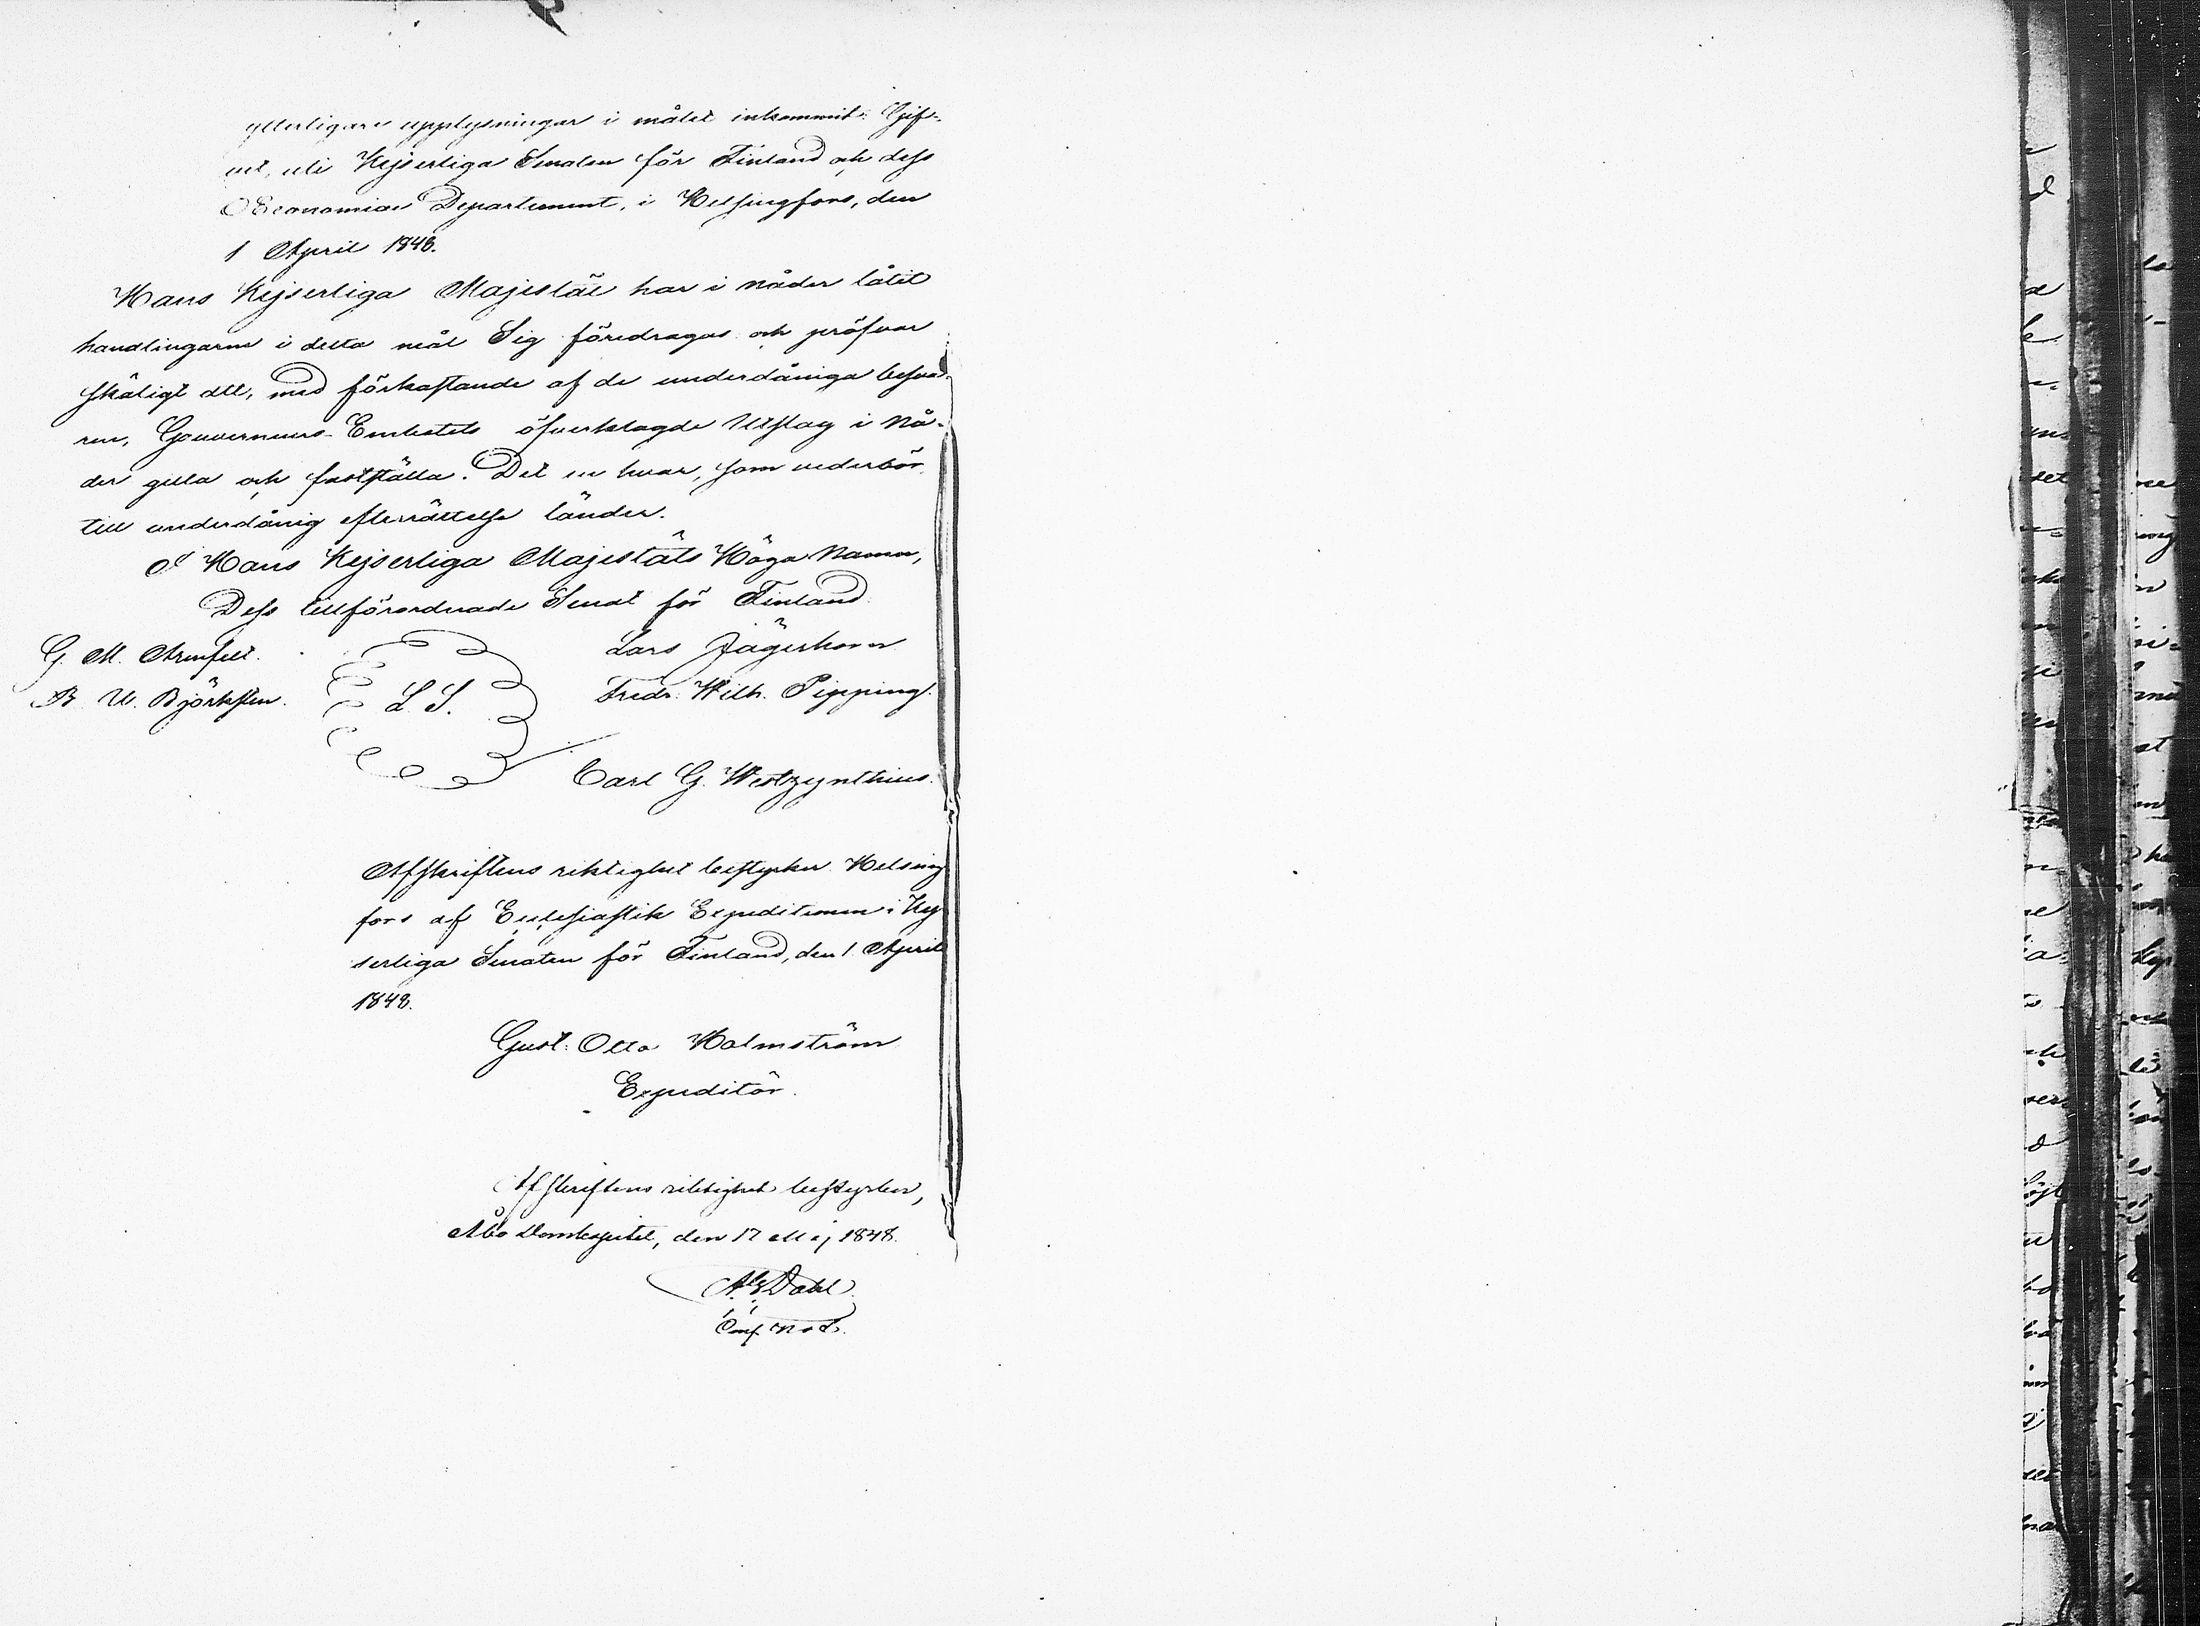 ytterligare upplysningar i målet inkommit. Gif-
vet, uti Kejserliga Senaten för Finland och dess
OEconomiae Departement, i Helsingfors, den
1 April 1848.
Hans Kejserliga Majestät har i nåder låtit
handlingarne i detta mål Sig föredragas och pröfvar
skäligt att, med förkastande af de underdåniga besvä-
ren, Gouverneurs-Embetets öfverklagde Utslag i Nå-
der gilla och fastställa. Det en hvar, som vederbör
till underdånig efterrättelse länder.
I Hans Kejserliga Majestäts Höga Namn,
Dess tillförordnade Senat för Finland
G. M. Armfelt. Lars Jägerhorn
B. U. Björksten. L. S. Fredr. Wilh. Pipping.
Carl G. Westzynthius.
Afskriftens riktighet bestyrker Helsing
fors af Ecclesiastik Expeditionen i Kej
serliga Senaten för Finland, den 1. April
1848.
Gust. Otto Holmström
Expeditör.
Afskriftens riktighet bestyrker,
Åbo Domkapitel, den 17 Maj 1848.
Dahl
Not.